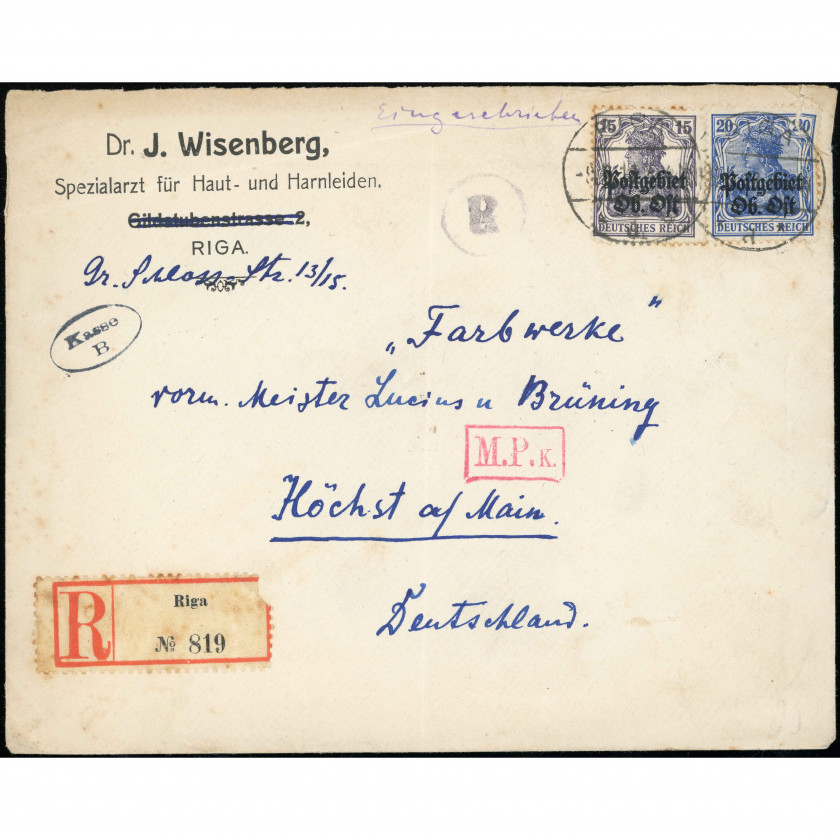 Eingeschrieben
Dr. J. Wisenberg,
Spezialarzt für Haut- und Harnleiden.
Gildstubenstrasse 2,
RIGA.
Gr. Schloss-Str. 13/15.
Kasse
B
R
15 15
Postgebiet
Ob. Ost
DEUTSCHES REICH
20 20
Postgebiet
Ob. Ost
DEUTSCHES REICH
„Farbwerke"
vorm. Meister Lucius u Brüning
M.P.K.
Höchst a/ Main.
Deutschland.
R
Riga
№ 819